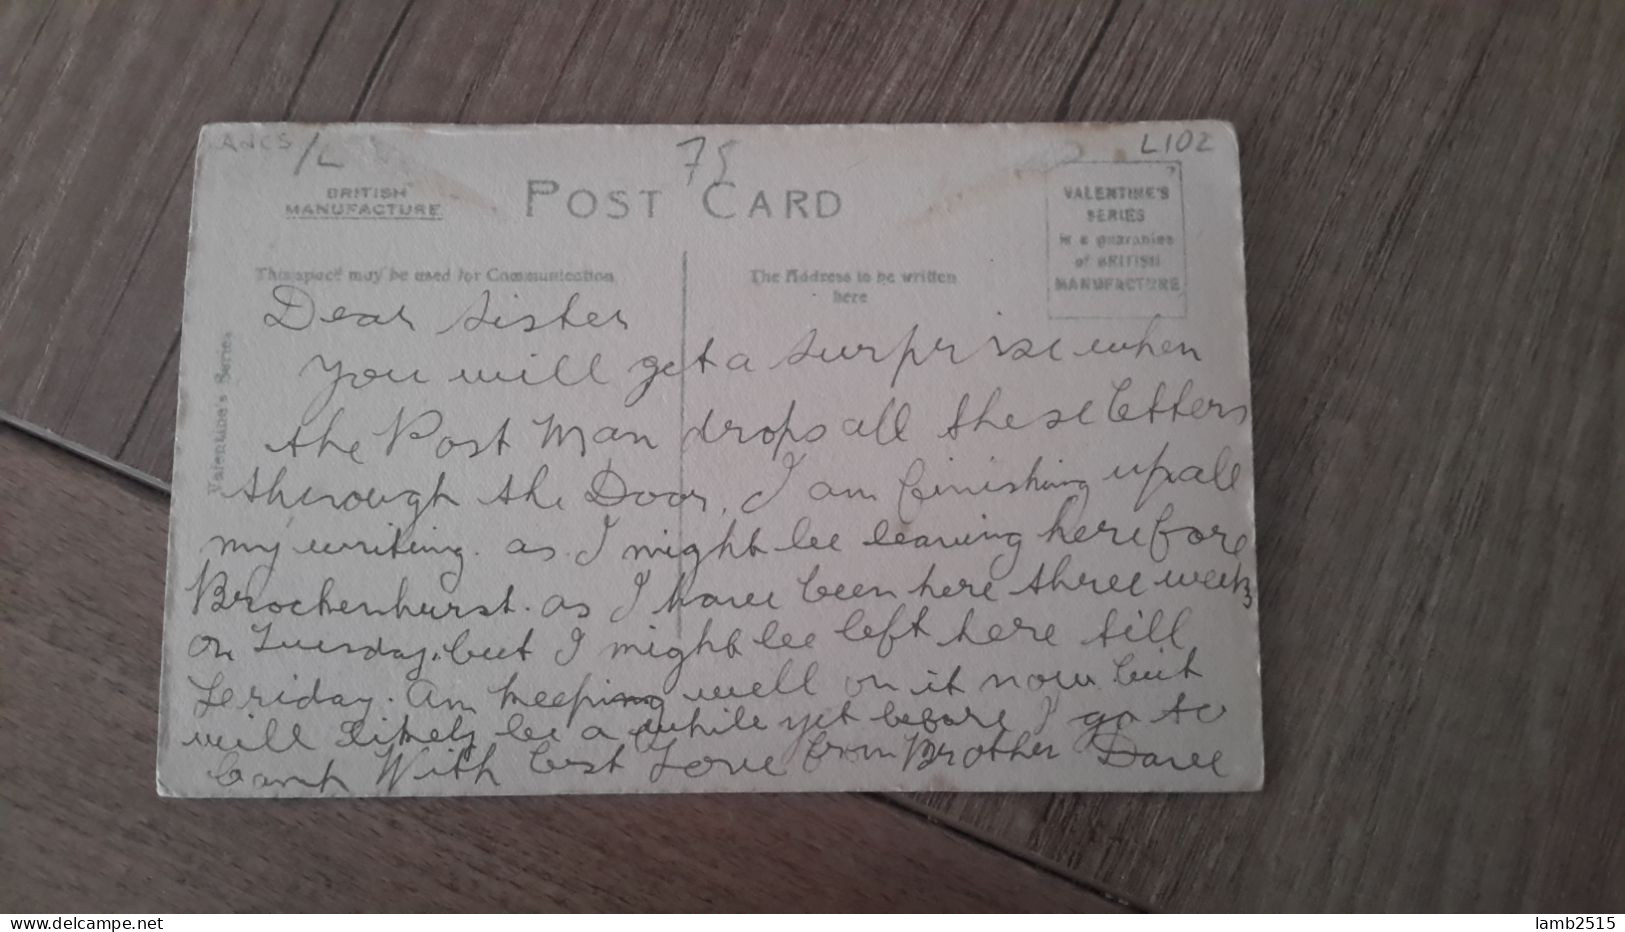 ANCS /L
75
L102
BRITISH
MANUFACTURE
POST CARD
VALENTINE'S
SERIES
is a guarantee
of BRITISH
MANUFACTURE
This space may be used for Communication
The Address to be written
here
Valentine's Series
Dear Sister
You will get a surprise when
the Post Man drops all these letters
therough the Door, I am finishing up all
my writing. as I might be leaving here fore
Brockenhurst. as I have been here three weeks
on Tuesday, but I might be left here till
Feriday. am keeping well on it now but
will likely be a while yet before I go to
Camp With best Love from Brother Dave
www.delcampe.net
lamb2515